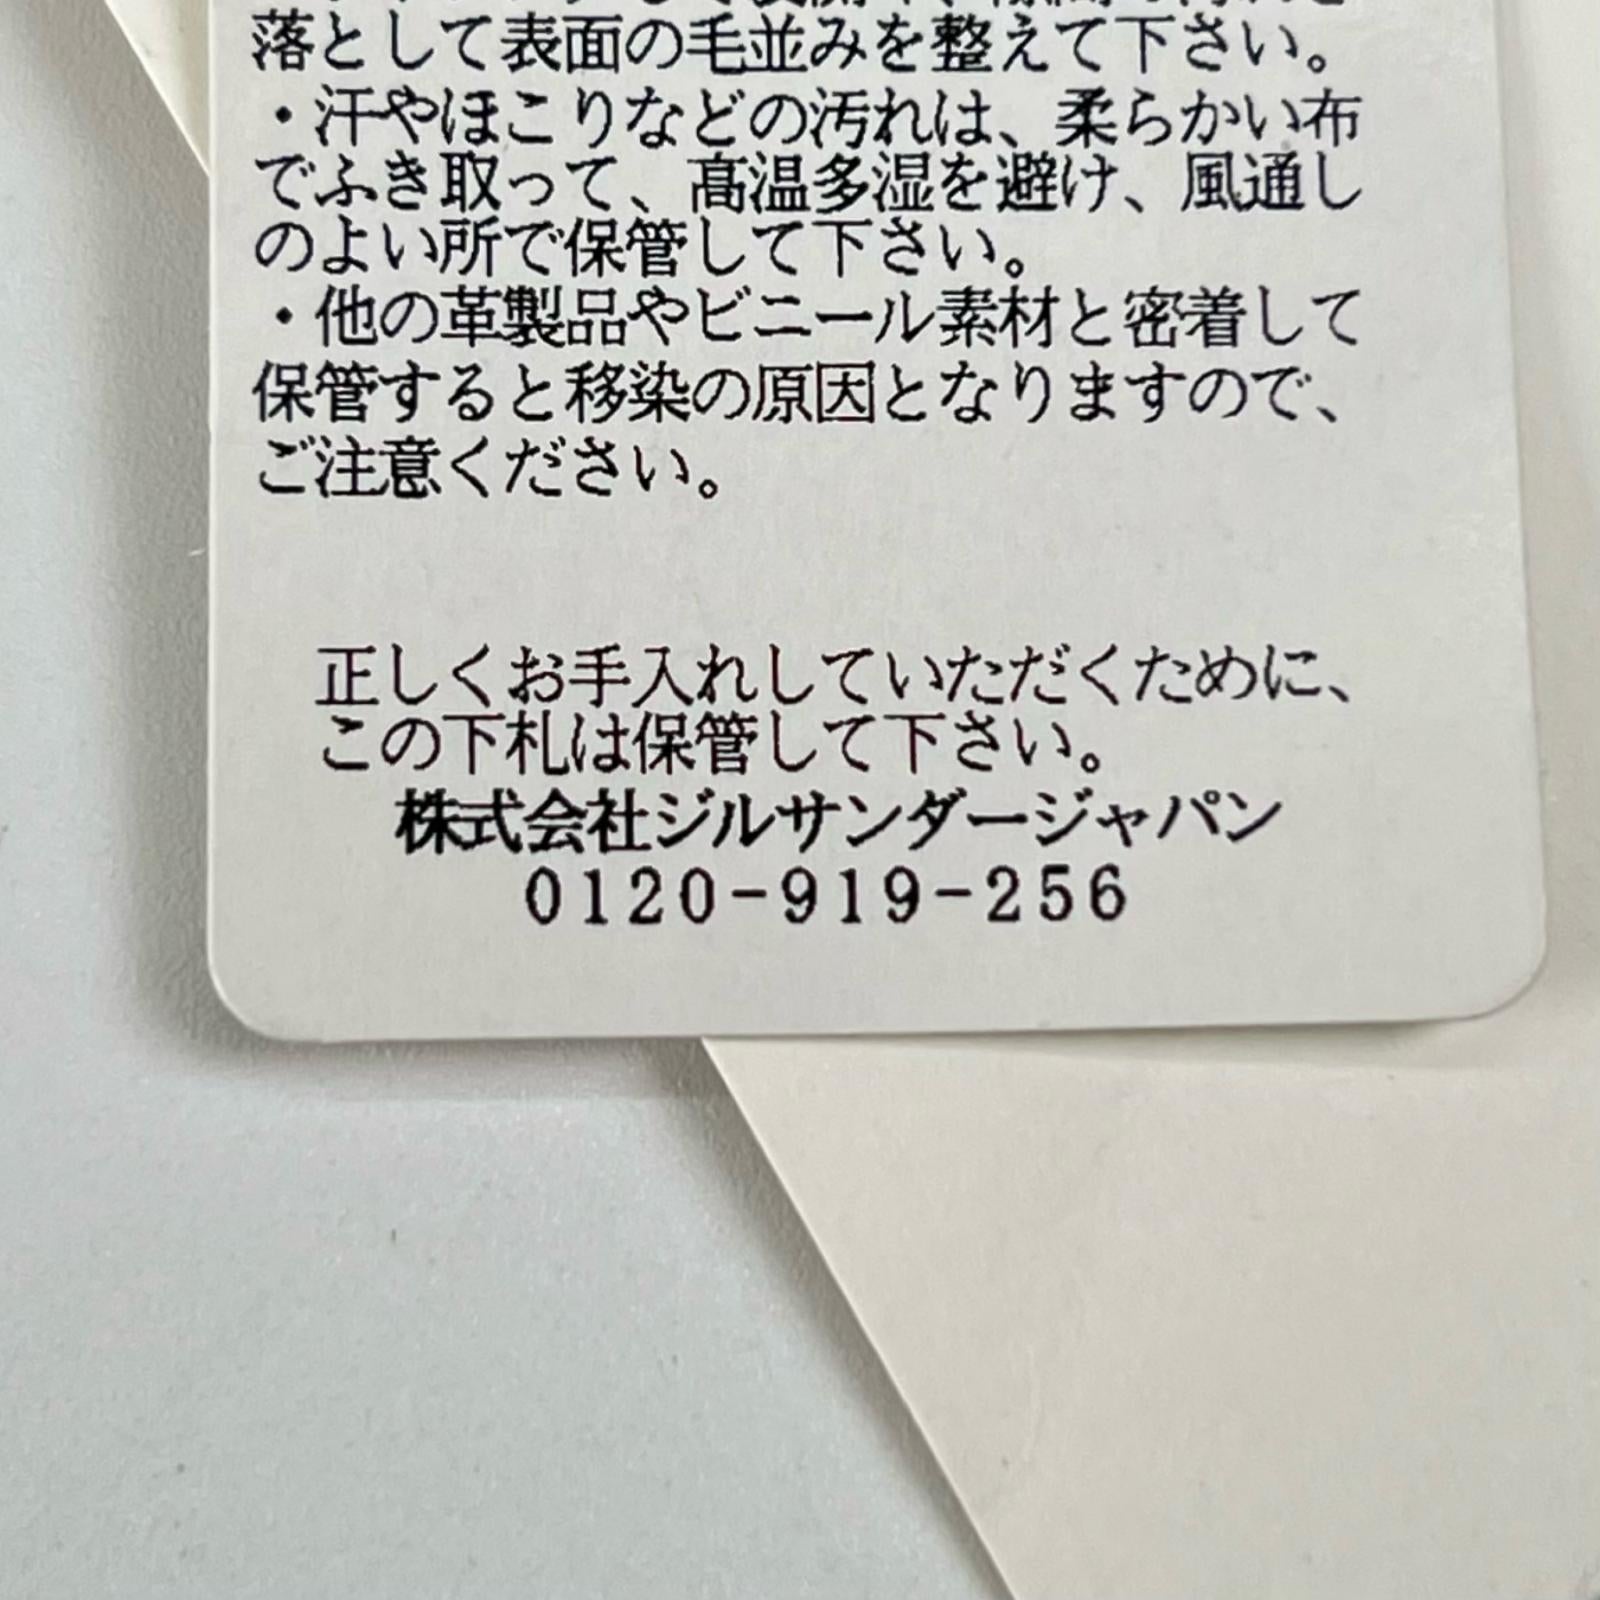 落として表面の毛並みを整えて下さい。
・汗やほこりなどの汚れは、柔らかい布
でふき取って、高温多湿を避け、風通し
のよい所で保管して下さい。
・他の革製品やビニール素材と密着して
保管すると移染の原因となりますので、
ご注意ください。
正しくお手入れしていただくために、
この下札は保管して下さい。
株式会社ジルサンダージャパン
0120-919-256